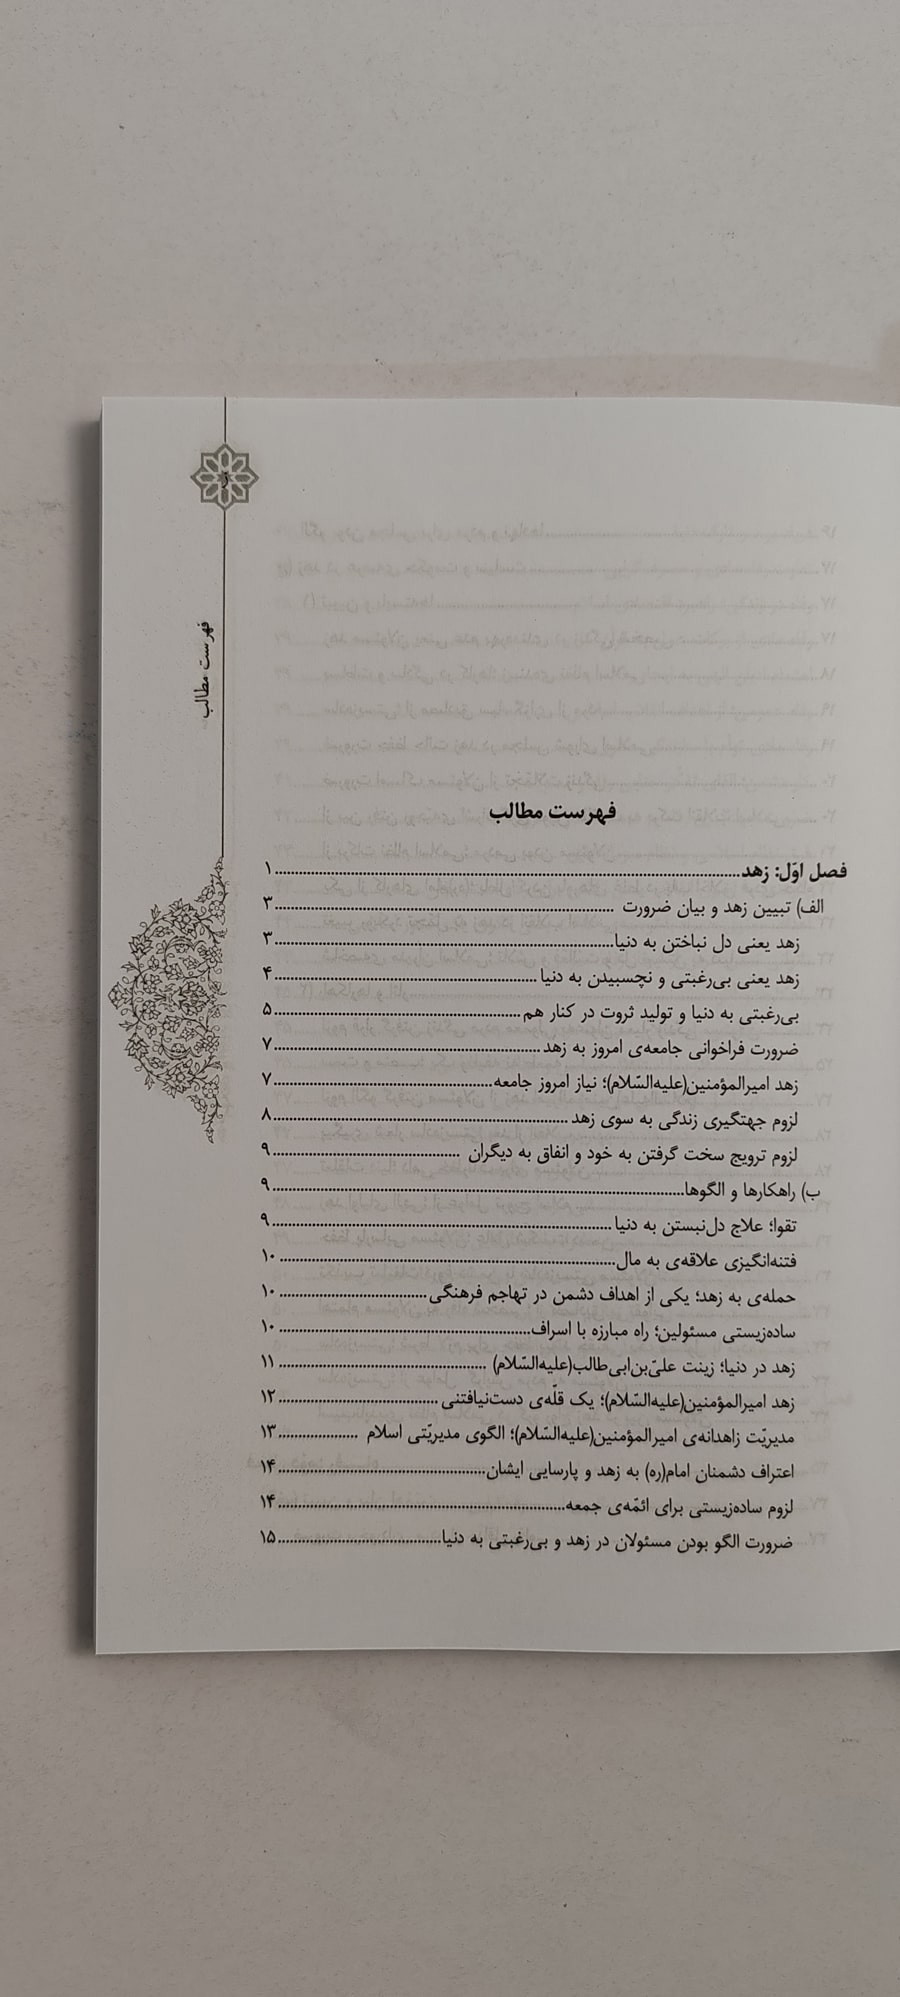 فهرست مطالب
فهرست مطالب
فصل اوّل: زهد ۱
الف) تبیین زهد و بیان ضرورت ۳
زهد یعنی دل نباختن به دنیا ۳
زهد یعنی بی‌رغبتی و نچسبیدن به دنیا ۴
بی‌رغبتی به دنیا و تولید ثروت در کنار هم ۵
ضرورت فراخوانی جامعه‌ی امروز به زهد ۷
زهد امیرالمؤمنین(علیه‌السّلام)؛ نیاز امروز جامعه ۷
لزوم جهتگیری زندگی به سوی زهد ۸
لزوم ترویج سخت گرفتن به خود و انفاق به دیگران ۹
ب) راهکارها و الگوها ۹
تقوا؛ علاج دل‌نبستن به دنیا ۹
فتنه‌انگیزی علاقه‌ی به مال ۱۰
حمله‌ی به زهد؛ یکی از اهداف دشمن در تهاجم فرهنگی ۱۰
ساده‌زیستی مسئولین؛ راه مبارزه با اسراف ۱۰
زهد در دنیا؛ زینت علیّ‌بن‌ابی‌طالب(علیه‌السّلام) ۱۱
زهد امیرالمؤمنین(علیه‌السّلام)؛ یک قلّه‌ی دست‌نیافتنی ۱۲
مدیریّت زاهدانه‌ی امیرالمؤمنین(علیه‌السّلام)؛ الگوی مدیریّتی اسلام ۱۳
اعتراف دشمنان امام(ره) به زهد و پارسایی ایشان ۱۴
لزوم ساده‌زیستی برای ائمّه‌ی جمعه ۱۴
ضرورت الگو بودن مسئولان در زهد و بی‌رغبتی به دنیا ۱۵